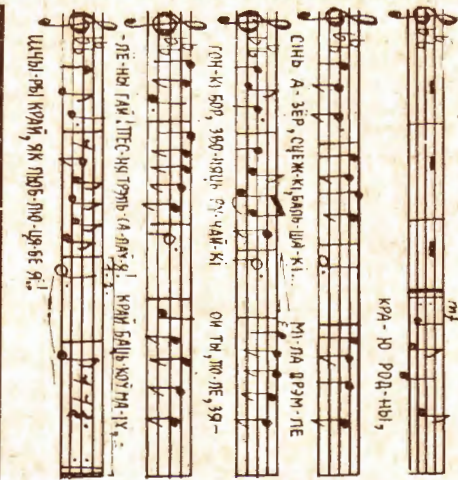 mf
КРА-Ю РОД-НЫ,
СІНЬ А-ЗЁР, СЦЕЖ-КІ, БАЛЬ-ША-КІ. МІ-ЛА ДРЭМ-ЛЕ
ГОН-КІ БОР, ЗВО-НЯЦЬ РУ-ЧАЙ-КІ ОЙ ТЫ, ПО-ЛЕ, ЗЯ-
-ЛЁ-НЫ ГАЙ, ТРЭЛЬ-СА-ЛАЎ-Я! КРАЙ БАЦЬ-КОЎ МА-ІХ,
ШЧЫ-РЫ КРАЙ, ЯК ЛЮБ-ЛЮ ЦЯ-БЕ Я!